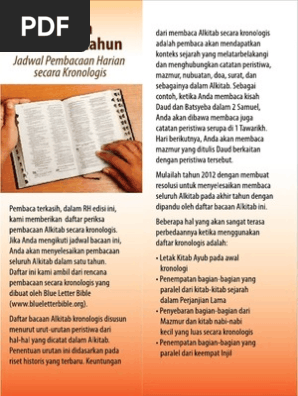 PDF
Tahun
Jadwal Pembacaan Harian
secara Kronologis
Pembaca terkasih, dalam RH edisi ini,
kami memberikan daftar periksa
pembacaan Alkitab secara kronologis.
Jika Anda mengikuti jadwal bacaan ini,
Anda akan menyelesaikan pembacaan
seluruh Alkitab dalam satu tahun.
Daftar ini kami ambil dari rencana
pembacaan secara kronologis yang
dibuat oleh Blue Letter Bible
(www.blueletterbible.org).
Daftar bacaan Alkitab kronologis disusun
menurut urut-urutan peristiwa dari
hal-hal yang dicatat dalam Alkitab.
Penentuan urutan ini didasarkan pada
riset historis yang terbaru. Keuntungan
dari membaca Alkitab secara kronologis
adalah pembaca akan mendapatkan
konteks sejarah yang melatarbelakangi
dan menghubungkan catatan peristiwa,
mazmur, nubuatan, doa, surat, dan
sebagainya dalam Alkitab. Sebagai
contoh, ketika Anda membaca kisah
Daud dan Batsyeba dalam 2 Samuel,
Anda akan dibawa membaca juga
catatan peristiwa serupa di 1 Tawarikh.
Hari berikutnya, Anda akan membaca
mazmur yang ditulis Daud berkaitan
dengan peristiwa tersebut.
Mulailah tahun 2012 dengan membuat
resolusi untuk menyelesaikan membaca
seluruh Alkitab pada akhir tahun dengan
dipandu oleh daftar bacaan Alkitab ini.
Beberapa hal yang akan sangat terasa
perbedaannya ketika menggunakan
daftar kronologis adalah:
• Letak Kitab Ayub pada awal
kronologi
• Penempatan bagian-bagian yang
paralel dari kitab-kitab sejarah
dalam Perjanjian Lama
• Penyebaran bagian-bagian dari
Mazmur dan kitab nabi-nabi
kecil yang luas secara kronologis
• Penempatan bagian-bagian yang
paralel dari keempat Injil